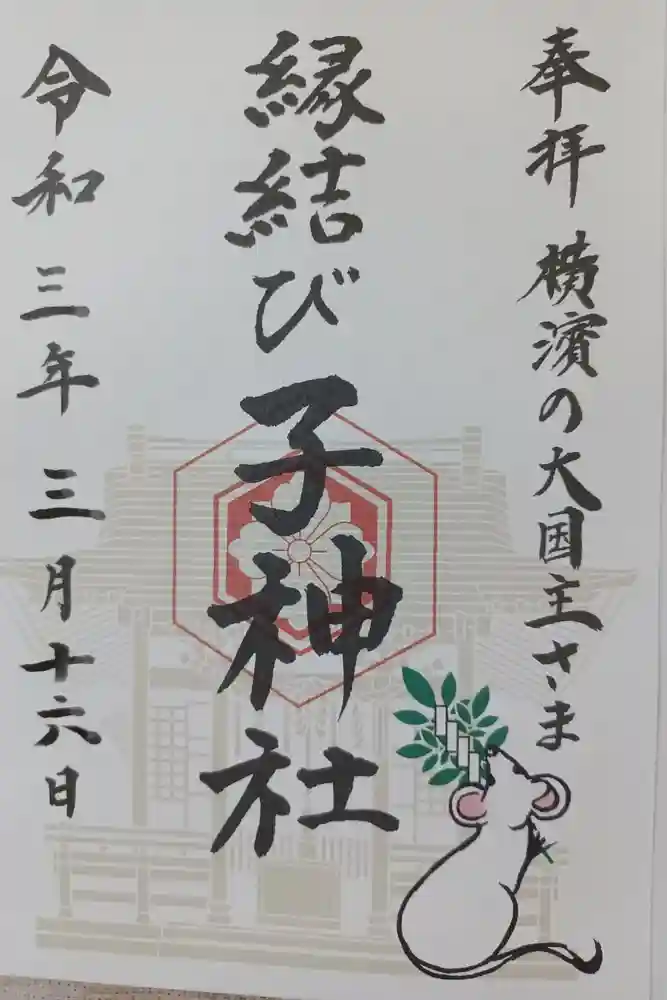 奉拝 横濱の大国主さま
縁結び子神社
令和三年三月十六日